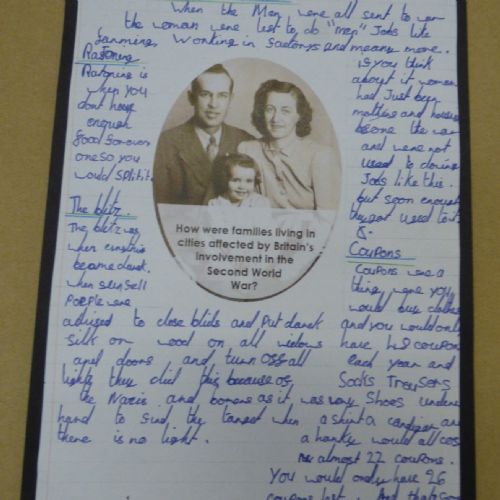 When the Men were all sent to war
the woman were lest to do "men" Jobs like
farming, Working in factorys and meany more.
Rationing
Rationing is
when you
dont have
enough
food for every
one so you
would split it.
is you think
about it women
had Just been
mothers and house
before the war
and were not
used to doing
Jobs like this.
but soon enough
they got used to it
How were families living in
cities affected by Britain's
involvement in the
Second World
War?
The blitz
The blitz was
when
became dark.
when
People were
advised to close blids and Put dark
silk or wood on all widows
and doors and turn off all
lights they did this because of
the Nazis and as it was very
hard to find the target when
there is no light.
Coupons
Coupons were a
thing were you
would buy clothes
and you would only
have 48 coupons
each year and
Socks Trousers
Shoes under
a shirt a cardigan an
a hanky would all cos
almost 22 coupons.
You would only have 26
coupons left.